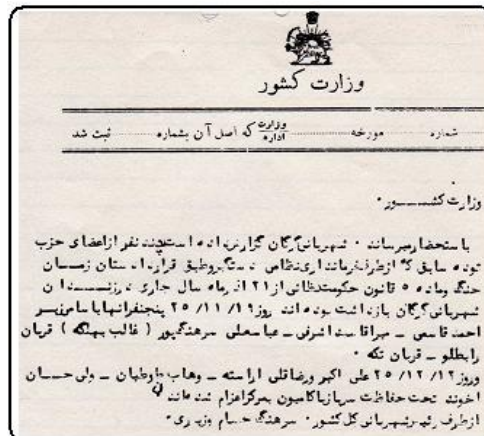 وزارت کشور
شماره مورخه وزارت اداره که اصل آن بشماره ثبت شد
وزارت کشور .
باستحضار میرساند . شهربانی گرگان گزارش داده است چند نفر از اعضای حزب
توده سابق که از طرف فرمانداری نظامی دستگیر و طبق قرار دادستان زمان
جنگ و ماده ۵ قانون حکومت نظامی از ۲۱ آذر ماه سال جاری در زندان
شهربانی گرگان بازداشت بوده اند روز ۲۵/۱۱/۱۹ پنج نفر آنها با سامی زیر
احمد قاسمی - میراقا سید اشرفی - عباسعلی سرهنگپور ( غالب بهلکه ) قربان
رابطلو - قربان تکه .
وروز ۲۵/۱۲/۱۲ علی اکبر ورضاقلی اراسته - وهاب - ولی حسان
اخوند تحت حفاظت سرباز با کامیون بمرکز اعزام شده اند
از طرف رئیس شهربانی کل کشور . سرهنگ حسام وزیری .